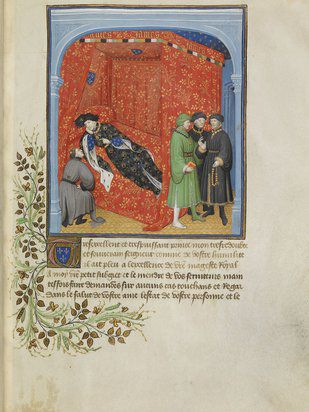 Tresexcellent et trespuissant prince mon tresdoubte
et souverain seigneur comme de vostre humilite
il ait pleu a lexcellence de vre mageste Royal
A moy vre petit subgect et le mendre de vos serviteurs maintes
fois faire demandes sur aucuns cas touchans et regar
dans le salut de vostre ame lestat de vostre personne et le